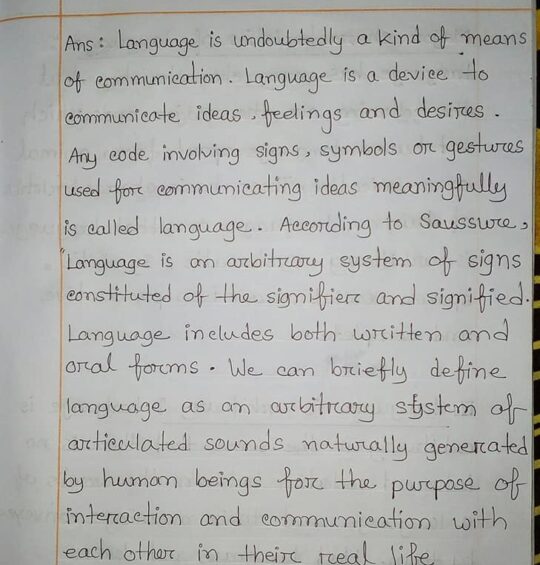 Ans: Language is undoubtedly a kind of means
of communication. Language is a device to
communicate ideas, feelings and desires.
Any code involving signs, symbols or gestures
used for communicating ideas meaningfully
is called language. According to Saussure,
"Language is an arbitrary system of signs
constituted of the signifier and signified.
Language includes both written and
oral forms. We can briefly define
language as an arbitrary system of
articulated sounds naturally generated
by human beings for the purpose of
interaction and communication with
each other in their real life